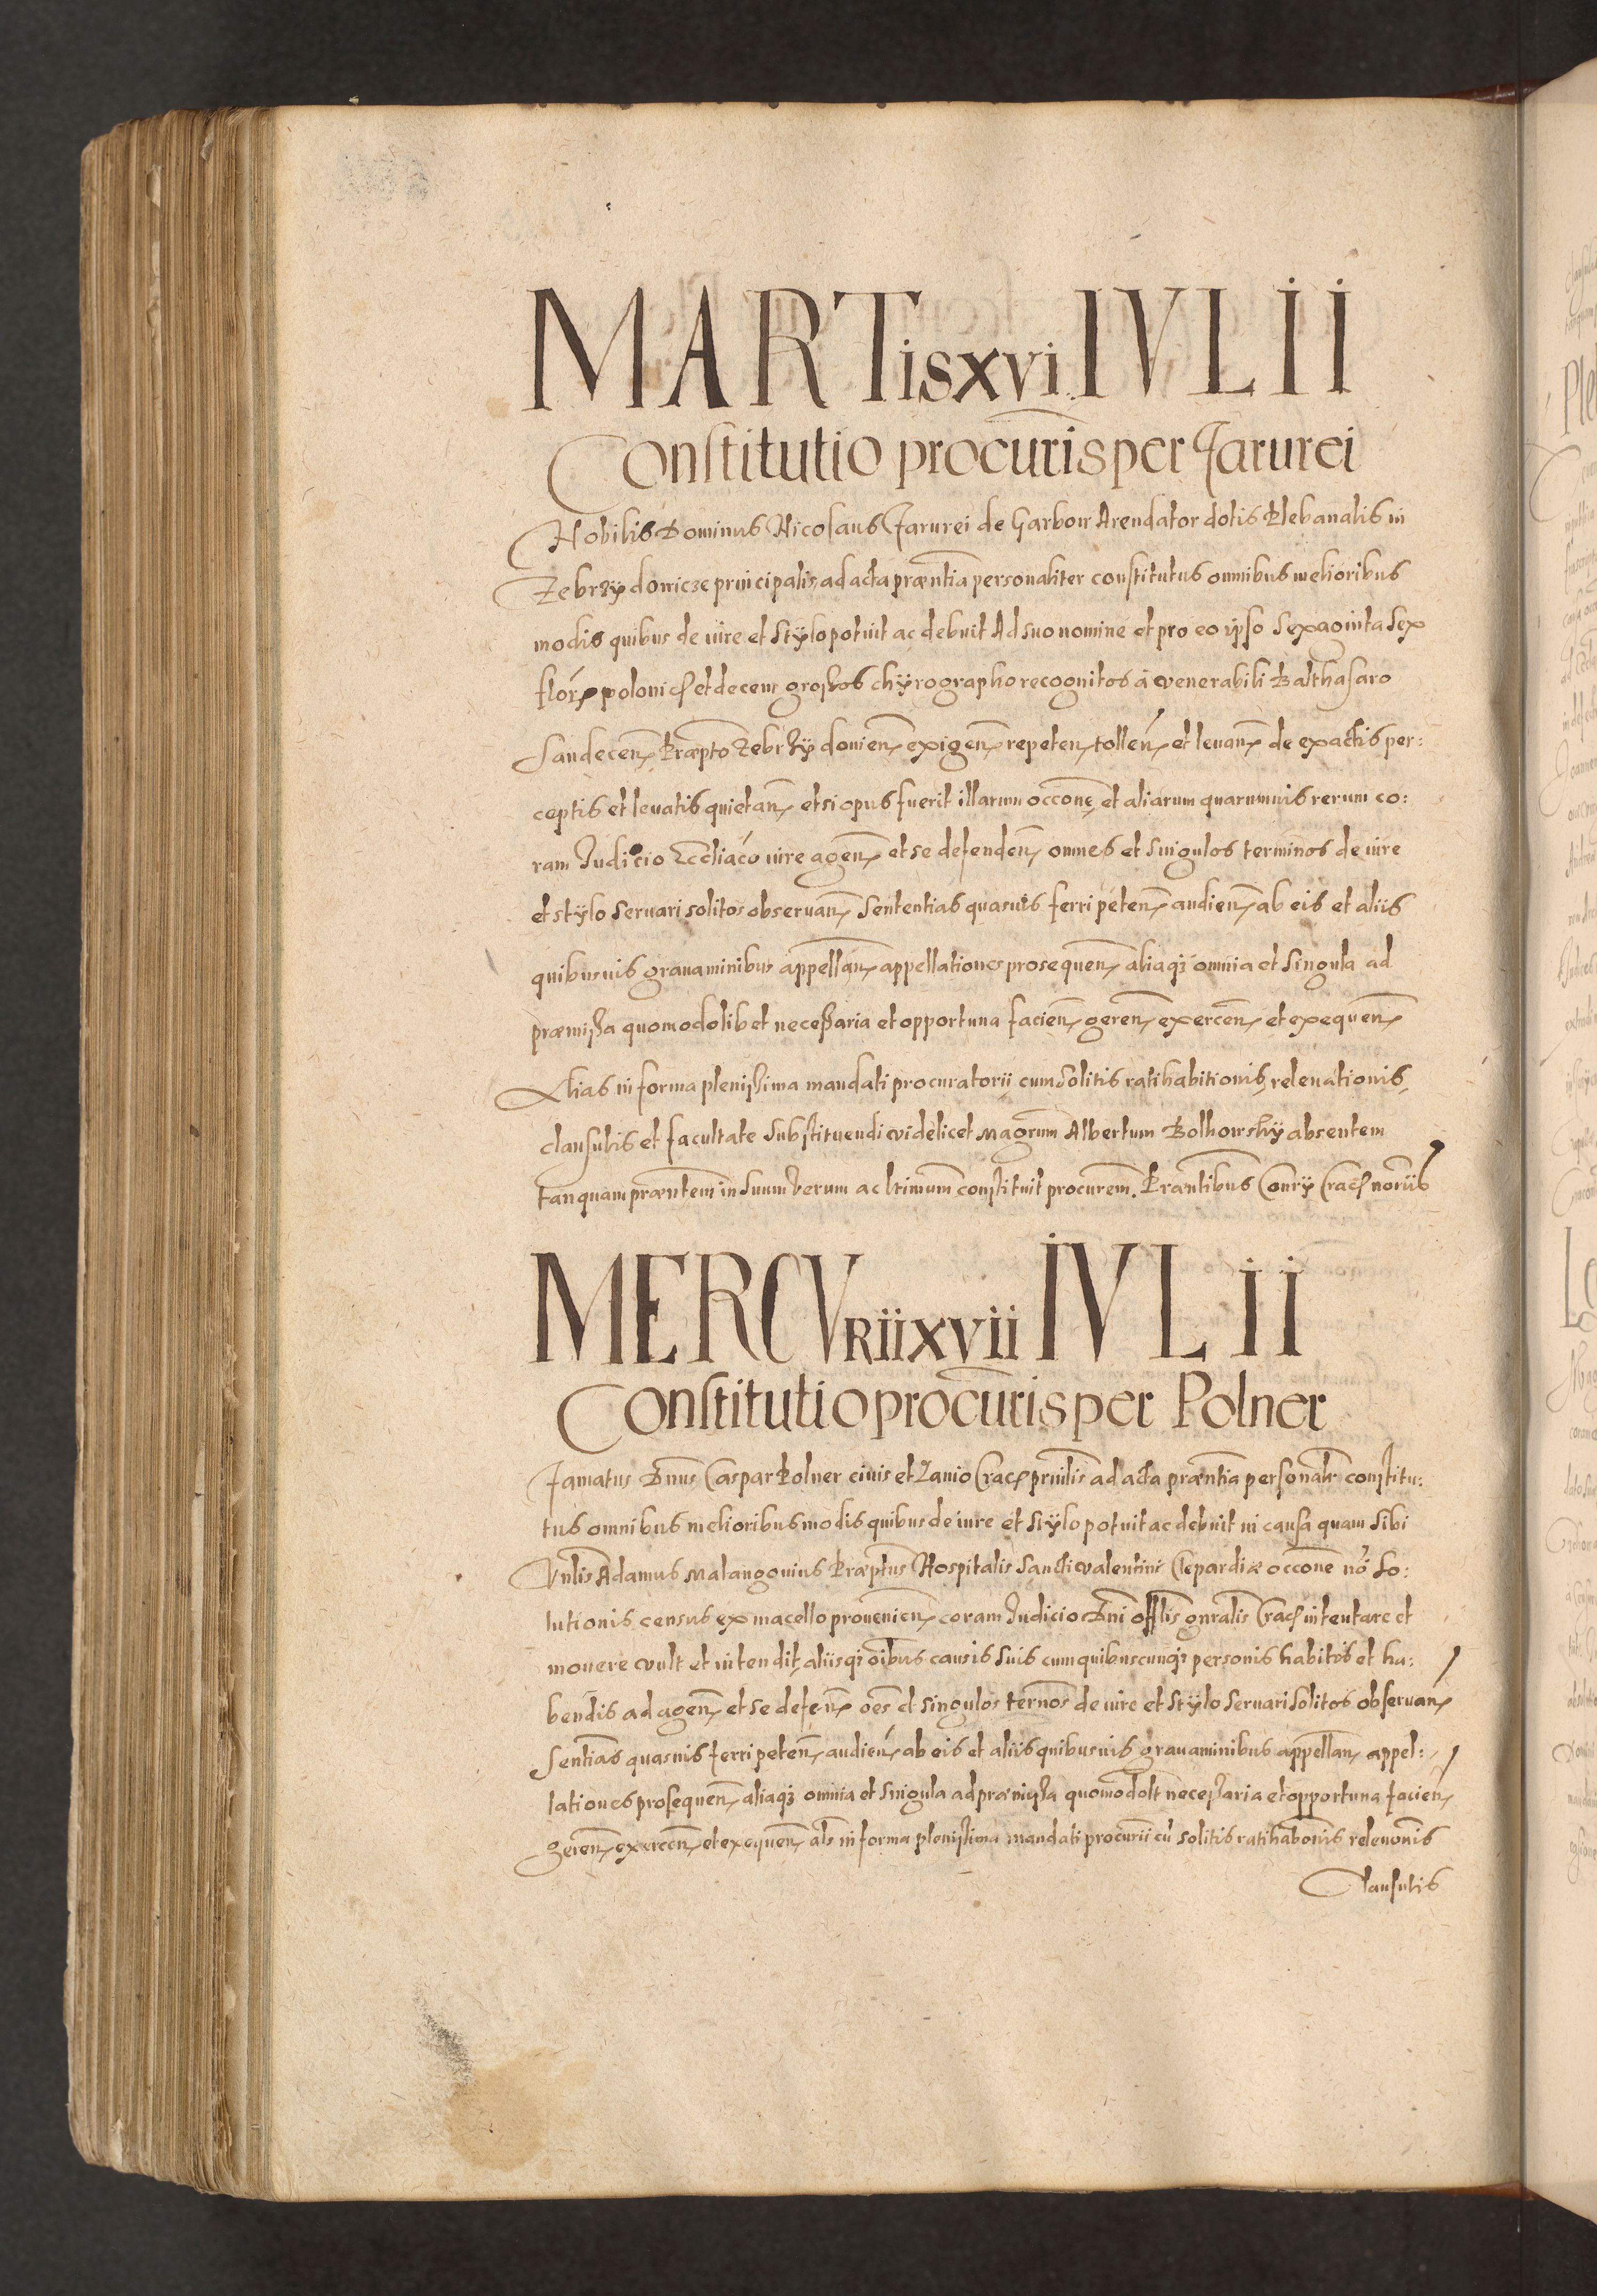 MARTis xvi IVLII
Constitutio procuris per Jarurei
Nobilis Dominus Nicolaus Jarurei de Garbow Arendator dotis Plebanalis in
Zebrzÿdowicze principalis, ad acta præntia personaliter constitutus omnibus melioribus
modis quibus de iure et stÿlo potuit ac debuit Ad suo nomine et pro eo ipso sexaginta sex
florẽ polonicꝭ et decem großos chÿrographo recognitos à venerabili Balthasaro
Sandecen Præpto Zebrzÿdovien exigen repeten tollen et levan de exactis per:
ceptis et levatis quietan et si opus fuerit illarum occone et aliarum quarumvis rerum co:
ram Judicio Ecclïaco iure agen et se defenden omnes et singulos terminos de iure
et stÿlo servari solitos observan Sententias quasvis ferri peten audien ab eis et aliis
quibusvis gravaminibus appellan appellationes prosequen aliaqꝫ omnia et singula ad
præmißa quomodolibet neceßaria et opportuna facien geren exercen et exequen
Alias in forma plenißima mandati procuratorii cum solitis ratihabitionis, relevationis,
clausulis et facultate substituendi videlicet Magrum Albertum Bolhowskÿ absentem
tanquam præntem in suum verum ac ltimum constituit procurem. Præntibus Conrÿ Cracꝭ noriis
MERCVRii xvii IVLII
Constitutio procuris per Polner
Famatus Dnus Caspar Polner civis et Lanio Cracꝭ prinlis ad acta præntia personalr constitu:
tus omnibus melioribus modis quibus de iure et stÿlo potuit ac debuit in causa quam sibi
Vnlis Adamus Malangovius Præptus Hospitalis Sancti Valentini Clepardiæ occone no so:
lutionis census ex macello provenien coram Judicio Dni offlis gnralis Cracꝭ intentare et
movere vult et intendit, aliisqꝫ oibus causis suis cum quibuscunqꝫ personis habitis et ha:
bendis ad agen et se defen oes et singulos ternos de iure et stÿlo servari solitos observan
Sentias quasvis ferri peten audien ab eis et aliis quibusvis gravaminibus appellan appel:
lationes prosequen aliaqꝫ omnia et singula ad præmißa quomodolt neceßaria et opportuna facien
geren exercen et exequen als in forma plenißima mandati procurii cu solitis ratihabonis relevonis
Clausulis